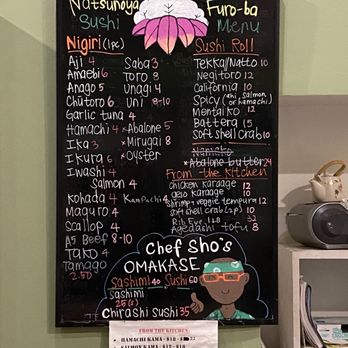 Natsunoya Furo-ba
Sushi Menu
Nigiri (1pc)
Aji 4
Amaebi 6
Anago 5
Chutoro 6
Garlic tuna 4
Hamachi 4
Ika 3
Ikura 6
Iwashi 4
Salmon 4
Kohada 4
Maguro 4
Scallop 4
A5 Beef 8-10
Tako 4
Tamago
2.50
Saba 3
Toro 8
Unagi 4
Uni 8-10
×Abalone 5
×Mirugai 8
×Oyster
Kampachi 4
Sushi Roll
Tekka/Natto 10
Negitoro 12
California 10
Spicy (ahi, salmon or hamachi) 10
Mentaiko 10
Battera 15
Soft Shell Crab 10
Namako
×Abalone butter 24
From the Kitchen
Chicken Karaage 12
geso Karaage 10
Shrimp + veggie tempura 12
Soft Shell crab (2p) 10
Rib Eye 32
Agedashi tofu 8
Chef Sho's
OMAKASE
Sashimi 40 Sushi 60
Sashimi
25 (5)
Chirashi Sushi 35
FROM THE KITCHEN
HAMACHI KAMA - $18
SALMON KAMA - $12 - $18